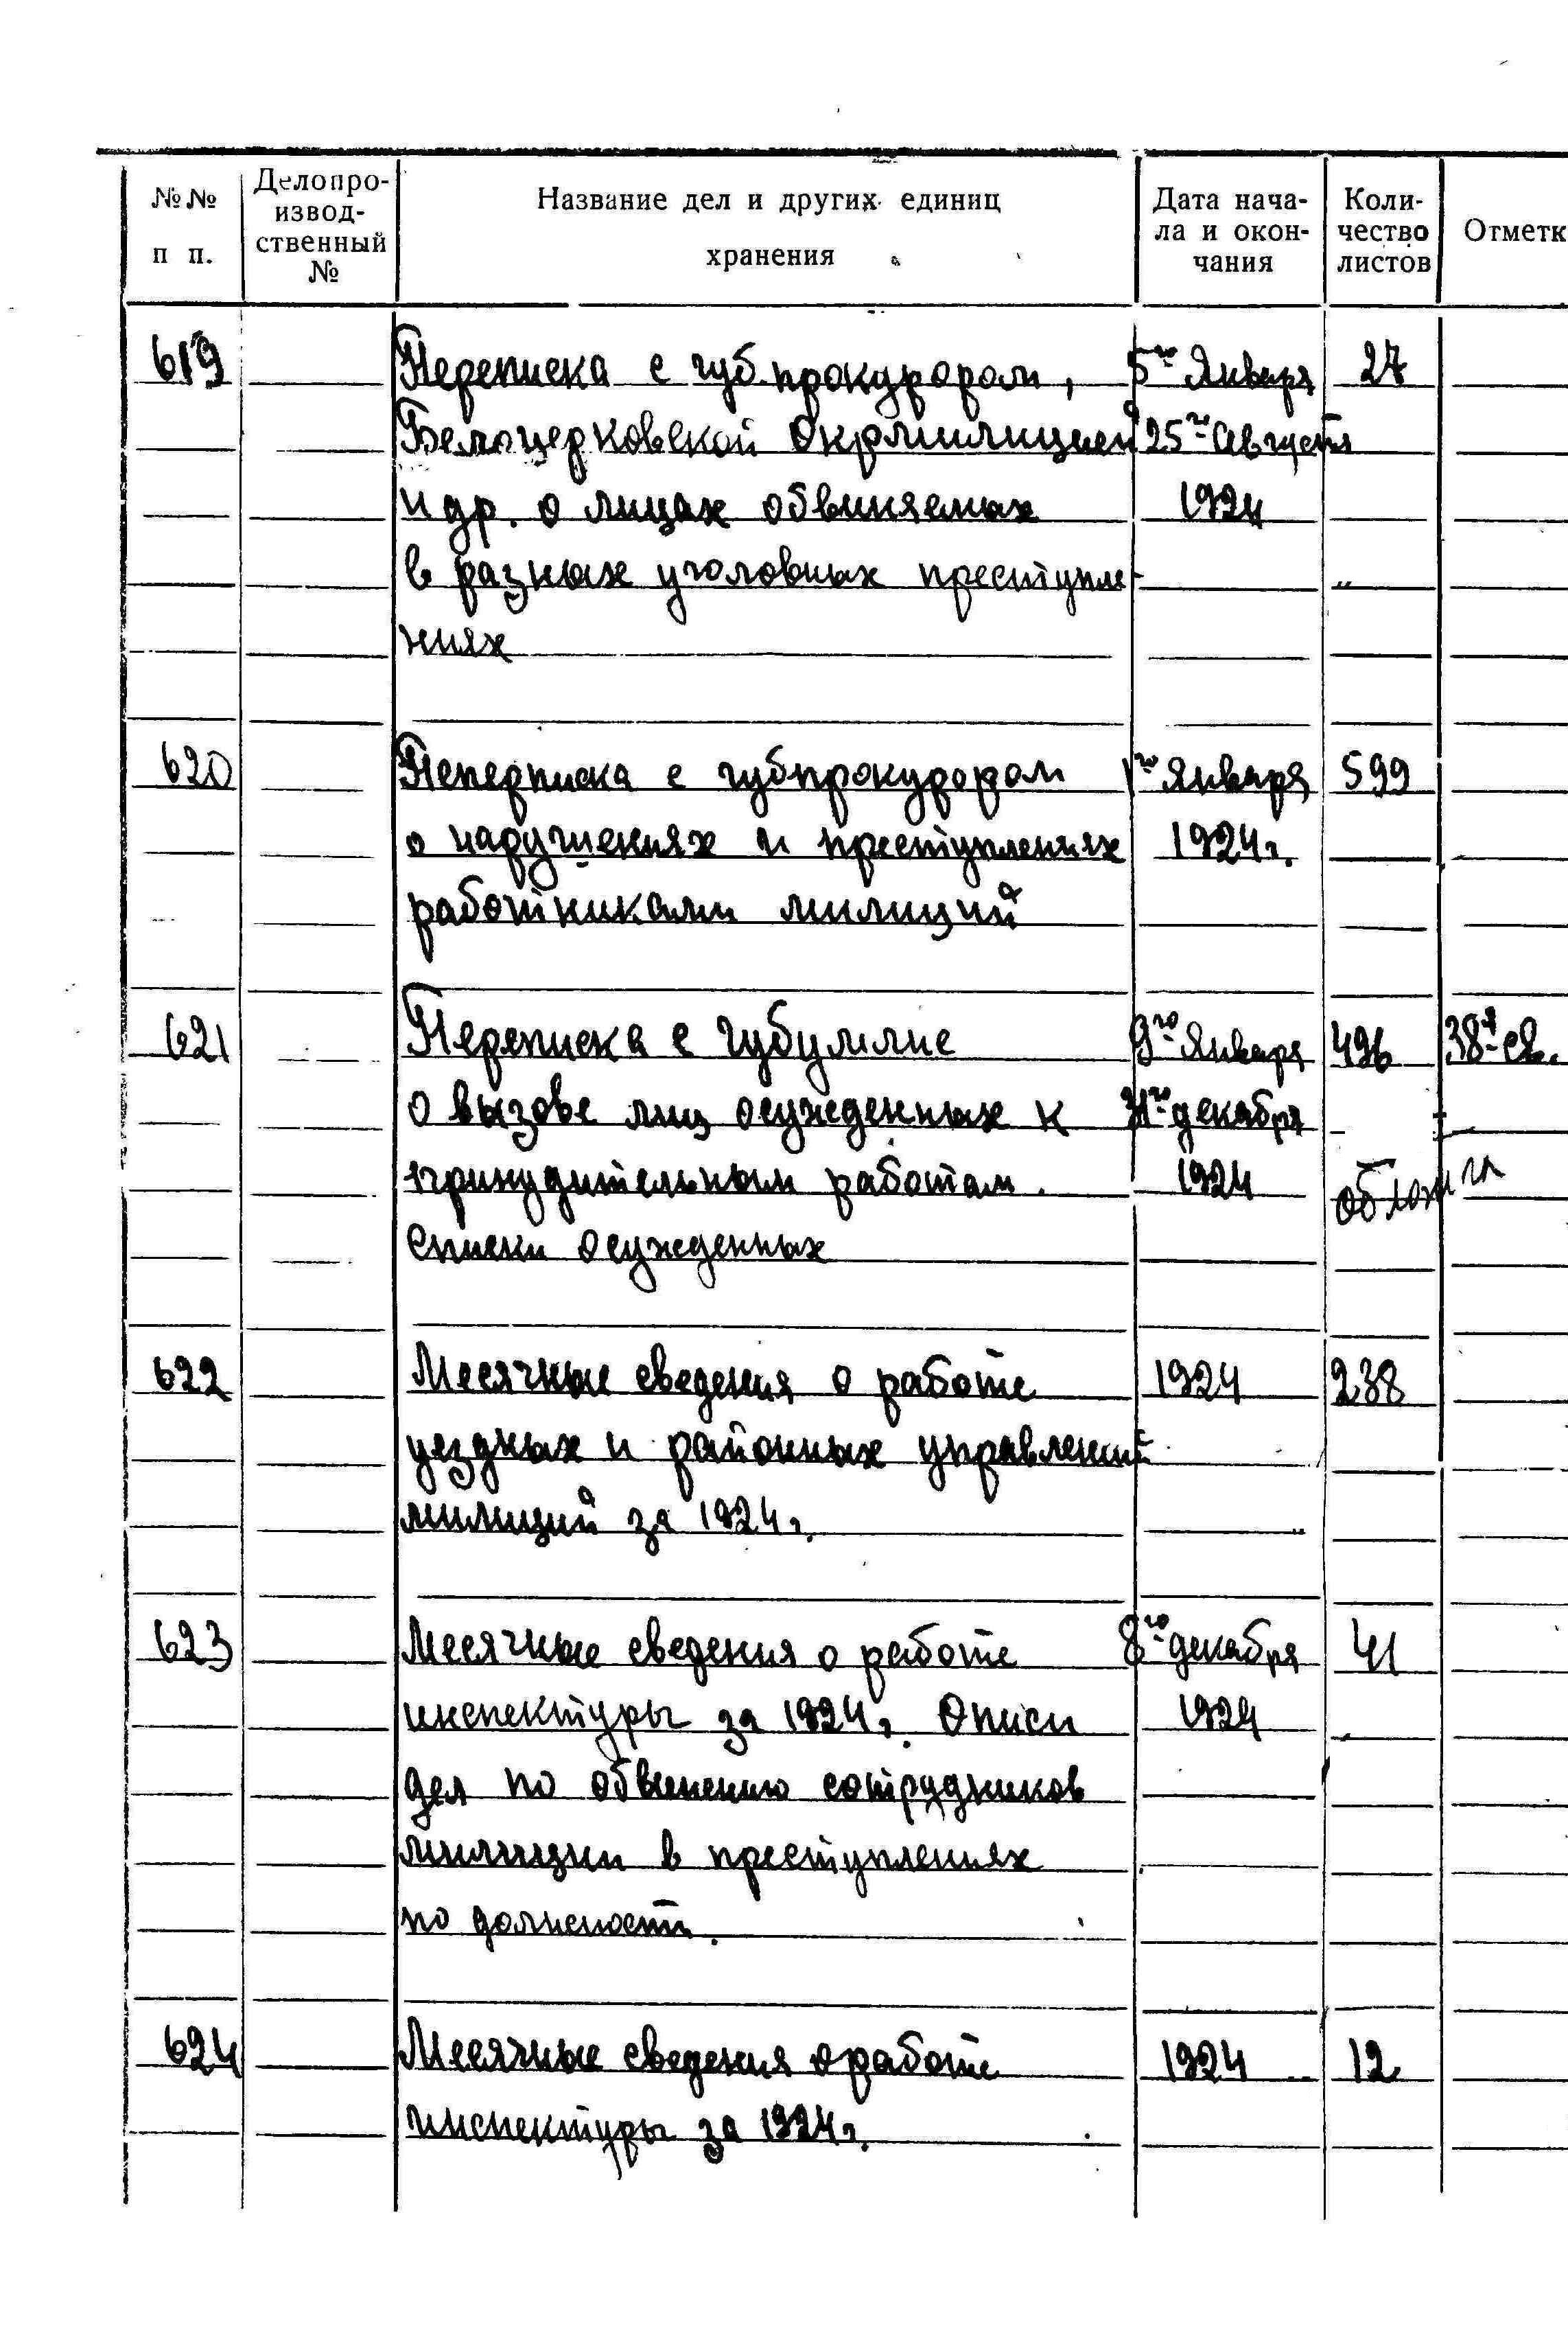 №№ п п. Делопроизводственный № Название дел и других единиц хранения Дата начала и окончания Количество листов Отметк
619 Переписка с губ.прокурором, 5го Января 27
Белоцерковской Окрмилицией 25го Августа
и др. о лицах обвиняемых 1924
в разных уголовных преступле-
ниях
620 Пепериска с губпрокурором 1го Января 599
о нарушениях и преступлениях 1924г.
работниками милиций
621 Переписка с 9го Января 496 38я св.
о вызове лиц осужденных к 31го декабря
принудительным работам. 1924
Списки осужденных
622 Месячные сведения о работе 1924 238
уездных и районных управлений
милиций за 1924г.
623 Месячные сведения о работе 8го декабря 41
инспектуры за 1924г. Описи 1924
дел по обвинению сотрудников
милиции в преступлениях
по должности.
624 Месячные сведения о работе 1924 12
инспектуры за 1924г.